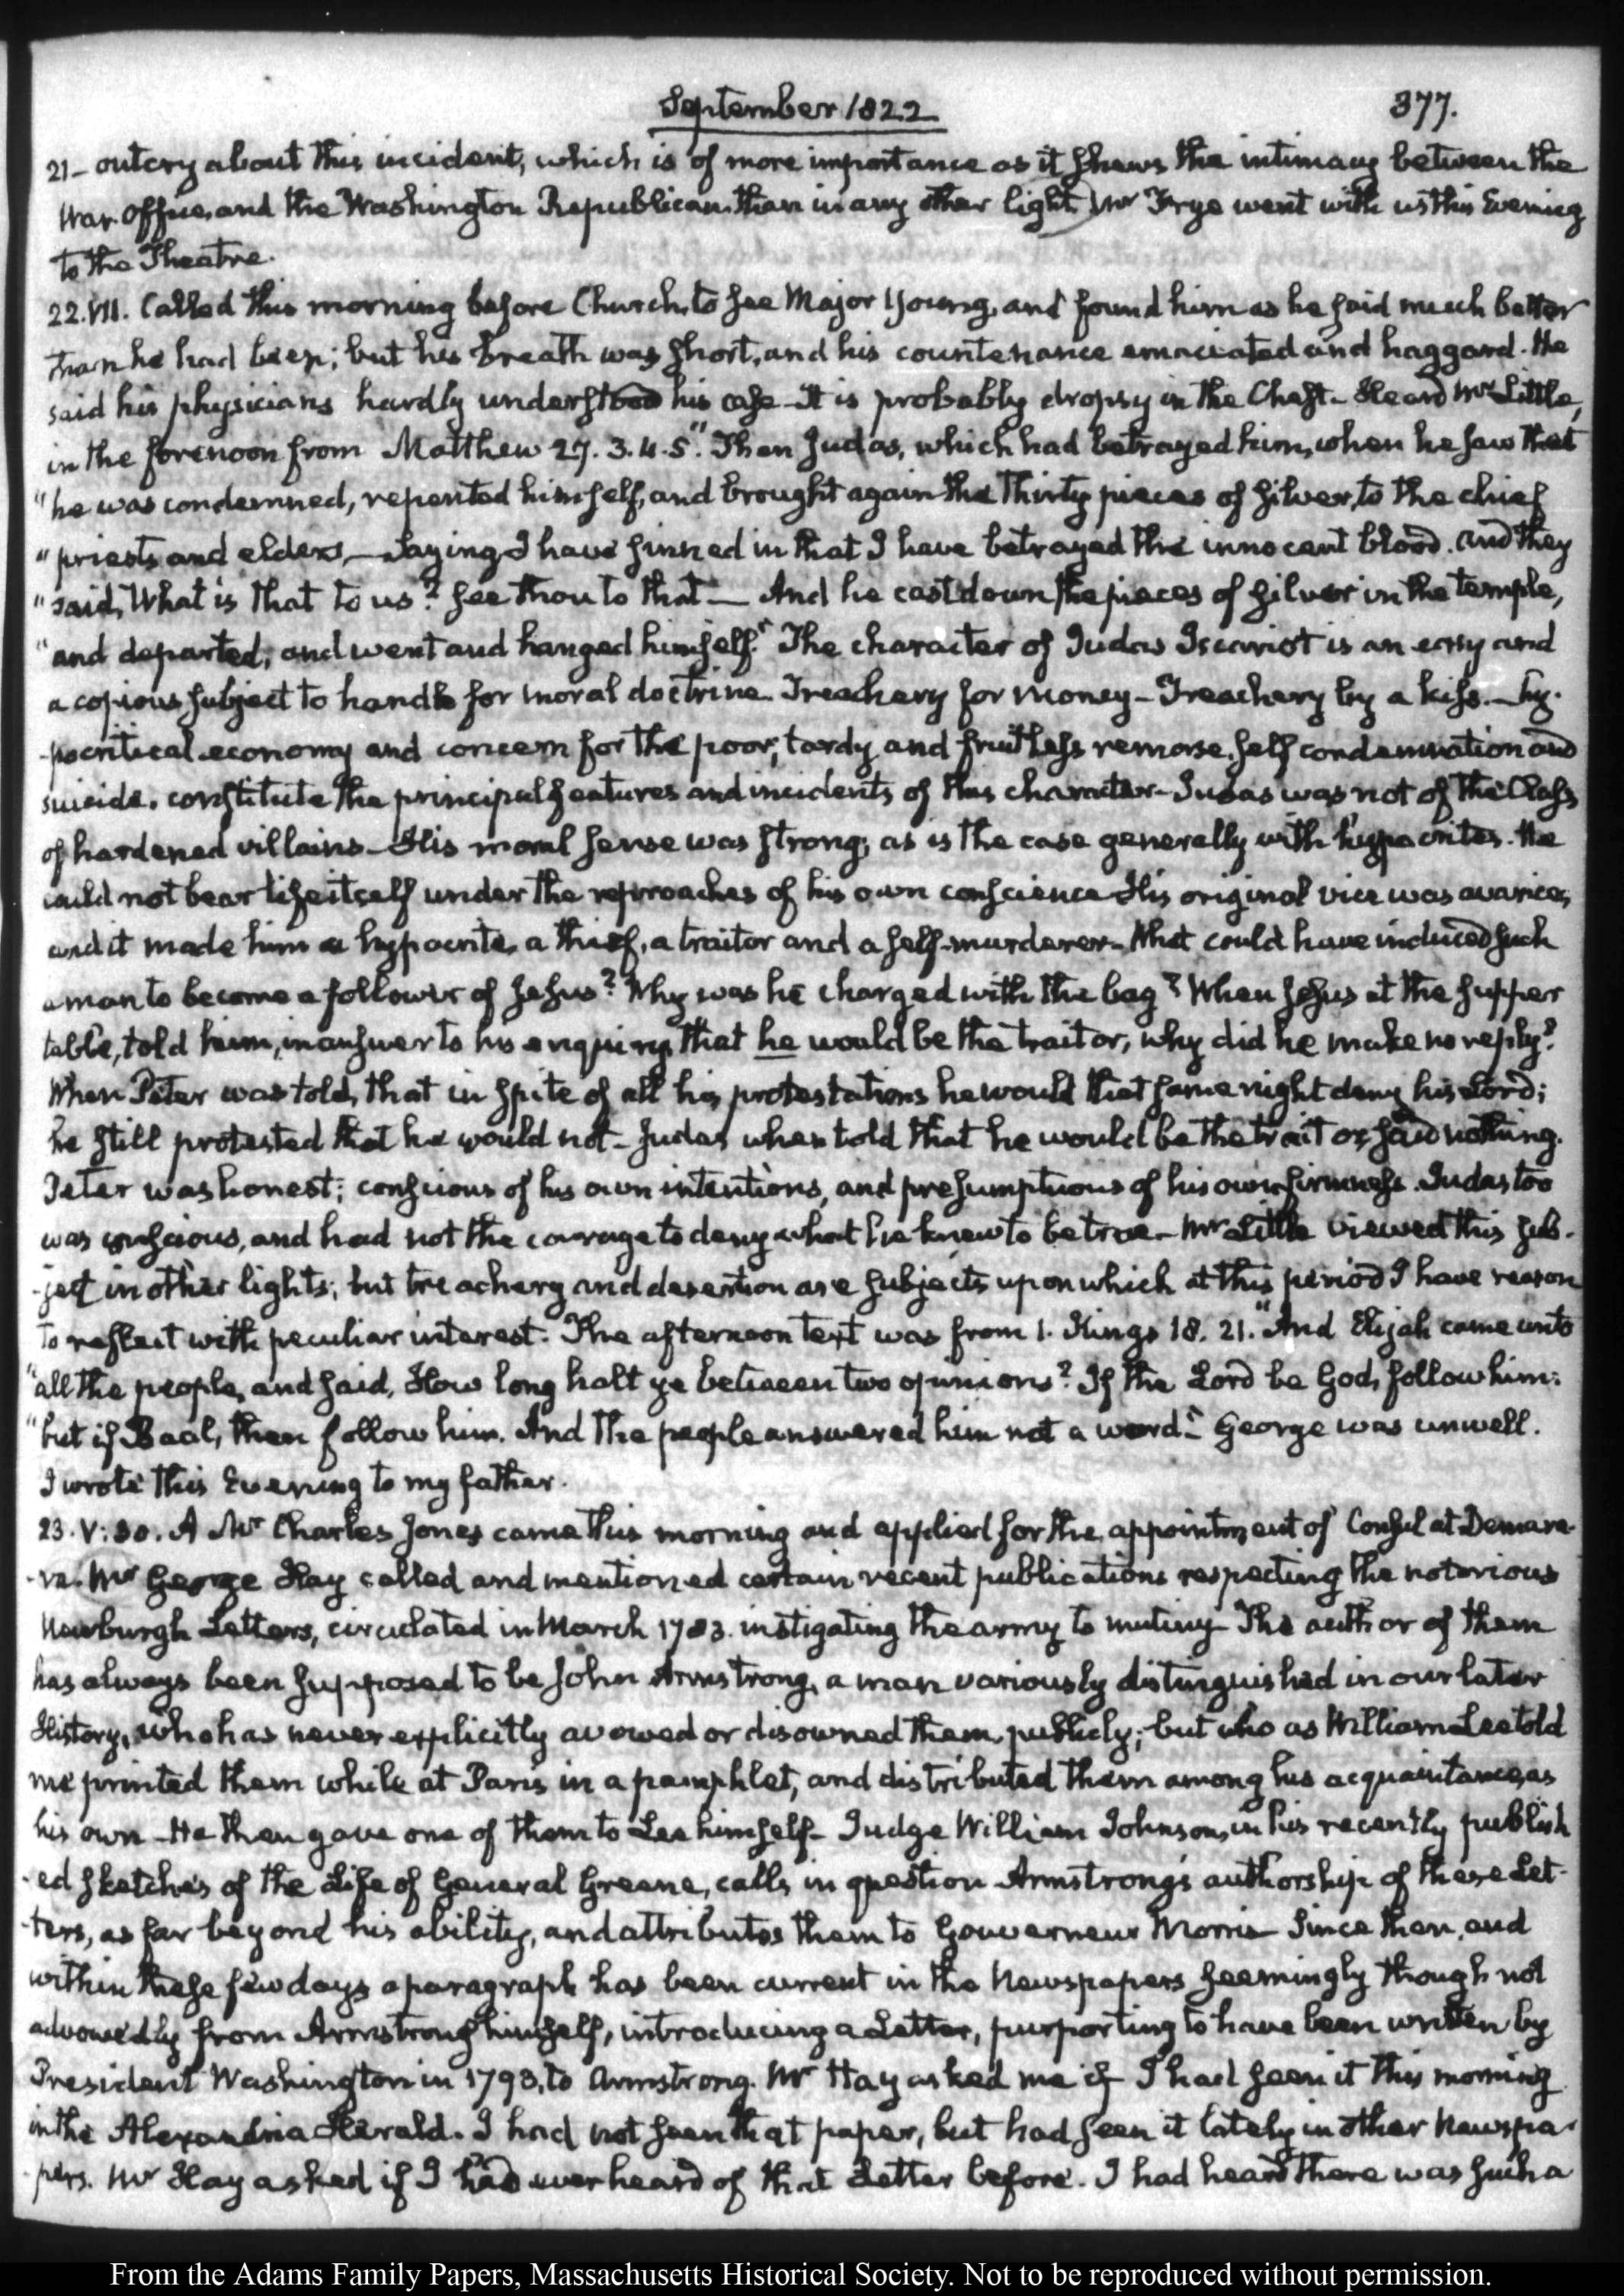 September 1822
377.
21 - outcry about this incident, which is of more importance as it shews the intimacy between the
War Office, and the Washington Republican than in any other light) Mr Frye went with us this Evening
to the Theatre.
22. VII. Called this morning before Church, to see Major Young, and found him as he said much better
than he had been; but his breath was short, and his countenance emaciated and haggard. He
said his physicians hardly understood his case - It is probably dropsy in the Chest - Heard Mr Little,
in the forenoon from Matthew 27. 3. 4. 5. "Then Judas, which had betrayed him, when he saw that
"he was condemned, repented himself, and brought again the Thirty pieces of silver, to the chief
"priests and elders, - Saying I have sinned in that I have betrayed the innocent blood. And they
"said, What is that to us? see thou to that - And he cast down the pieces of silver in the temple,
"and departed, and went and hanged himself." The character of Judas Iscariot is an easy and
a copious subject to handle for moral doctrine. Treachery for money - Treachery by a kiss. - hy-
-pocritical economy and concern for the poor, tardy and fruitless remorse, self condemnation and
suicide. constitute the principal features and incidents of this character - Judas was not of the Class
of hardened villains - His moral sense was strong; as is the case generally with hypocrites. He
could not bear life itself under the reproaches of his own conscience - His original vice was avarice,
and it made him a hypocrite, a thief, a traitor and a self-murderer - What could have induced such
a man to become a follower of Jesus? Why was he charged with the bag? When Jesus at the supper
table, told him, in answer to his enquiry, that he would be the traitor, why did he make no reply?
When Peter was told, that in spite of all his protestations he would that same night deny his Lord;
he still protested that he would not - Judas when told that he would be the traitor, said nothing.
Peter was honest; conscious of his own intentions, and presumptuous of his own firmness. Judas too
was conscious, and had not the courage to deny what he knew to be true - Mr Little viewed this sub-
-ject in other lights; but treachery and desertion are subjects upon which at this period I have reason
to reflect with peculiar interest. The afternoon text was from 1. Kings 18. 21. "And Elijah came unto
"all the people, and said, How long halt ye between two opinions? If the Lord be God, follow him:
"but if Baal, then follow him. And the people answered him not a word." George was unwell.
I wrote this Evening to my father.
23. V:30. A Mr Charles Jones came this morning and applied for the appointment of Consul at Demara-
-ra. Mr George Hay called and mentioned certain recent publications respecting the notorious
Newburgh Letters, circulated in March 1783. instigating the army to mutiny - The author of them
has always been supposed to be John Armstrong, a man variously distinguished in our later
History, who has never explicitly avowed or disowned them, publicly; but who as William Lee told
me printed them while at Paris in a pamphlet, and distributed them among his acquaintance, as
his own - He then gave one of them to Lee himself - Judge William Johnson, in his recently publish
-ed sketches of the Life of General Greene, calls in question Armstrong's authorship of these Let-
-ters, as far beyond his ability, and attributes them to Gouverneur Morris - Since then, and
within these few days a paragraph has been current in the Newspapers seemingly though not
avowedly from Armstrong himself, introducing a Letter, purporting to have been written by
President Washington in 1793, to Armstrong. Mr Hay asked me if I had seen it this morning
in the Alexandria Herald. I had not seen that paper, but had seen it lately in other Newspa-
-pers. Mr Hay asked if I had ever heard of that Letter before. I had heard there was such a
From the Adams Family Papers, Massachusetts Historical Society. Not to be reproduced without permission.